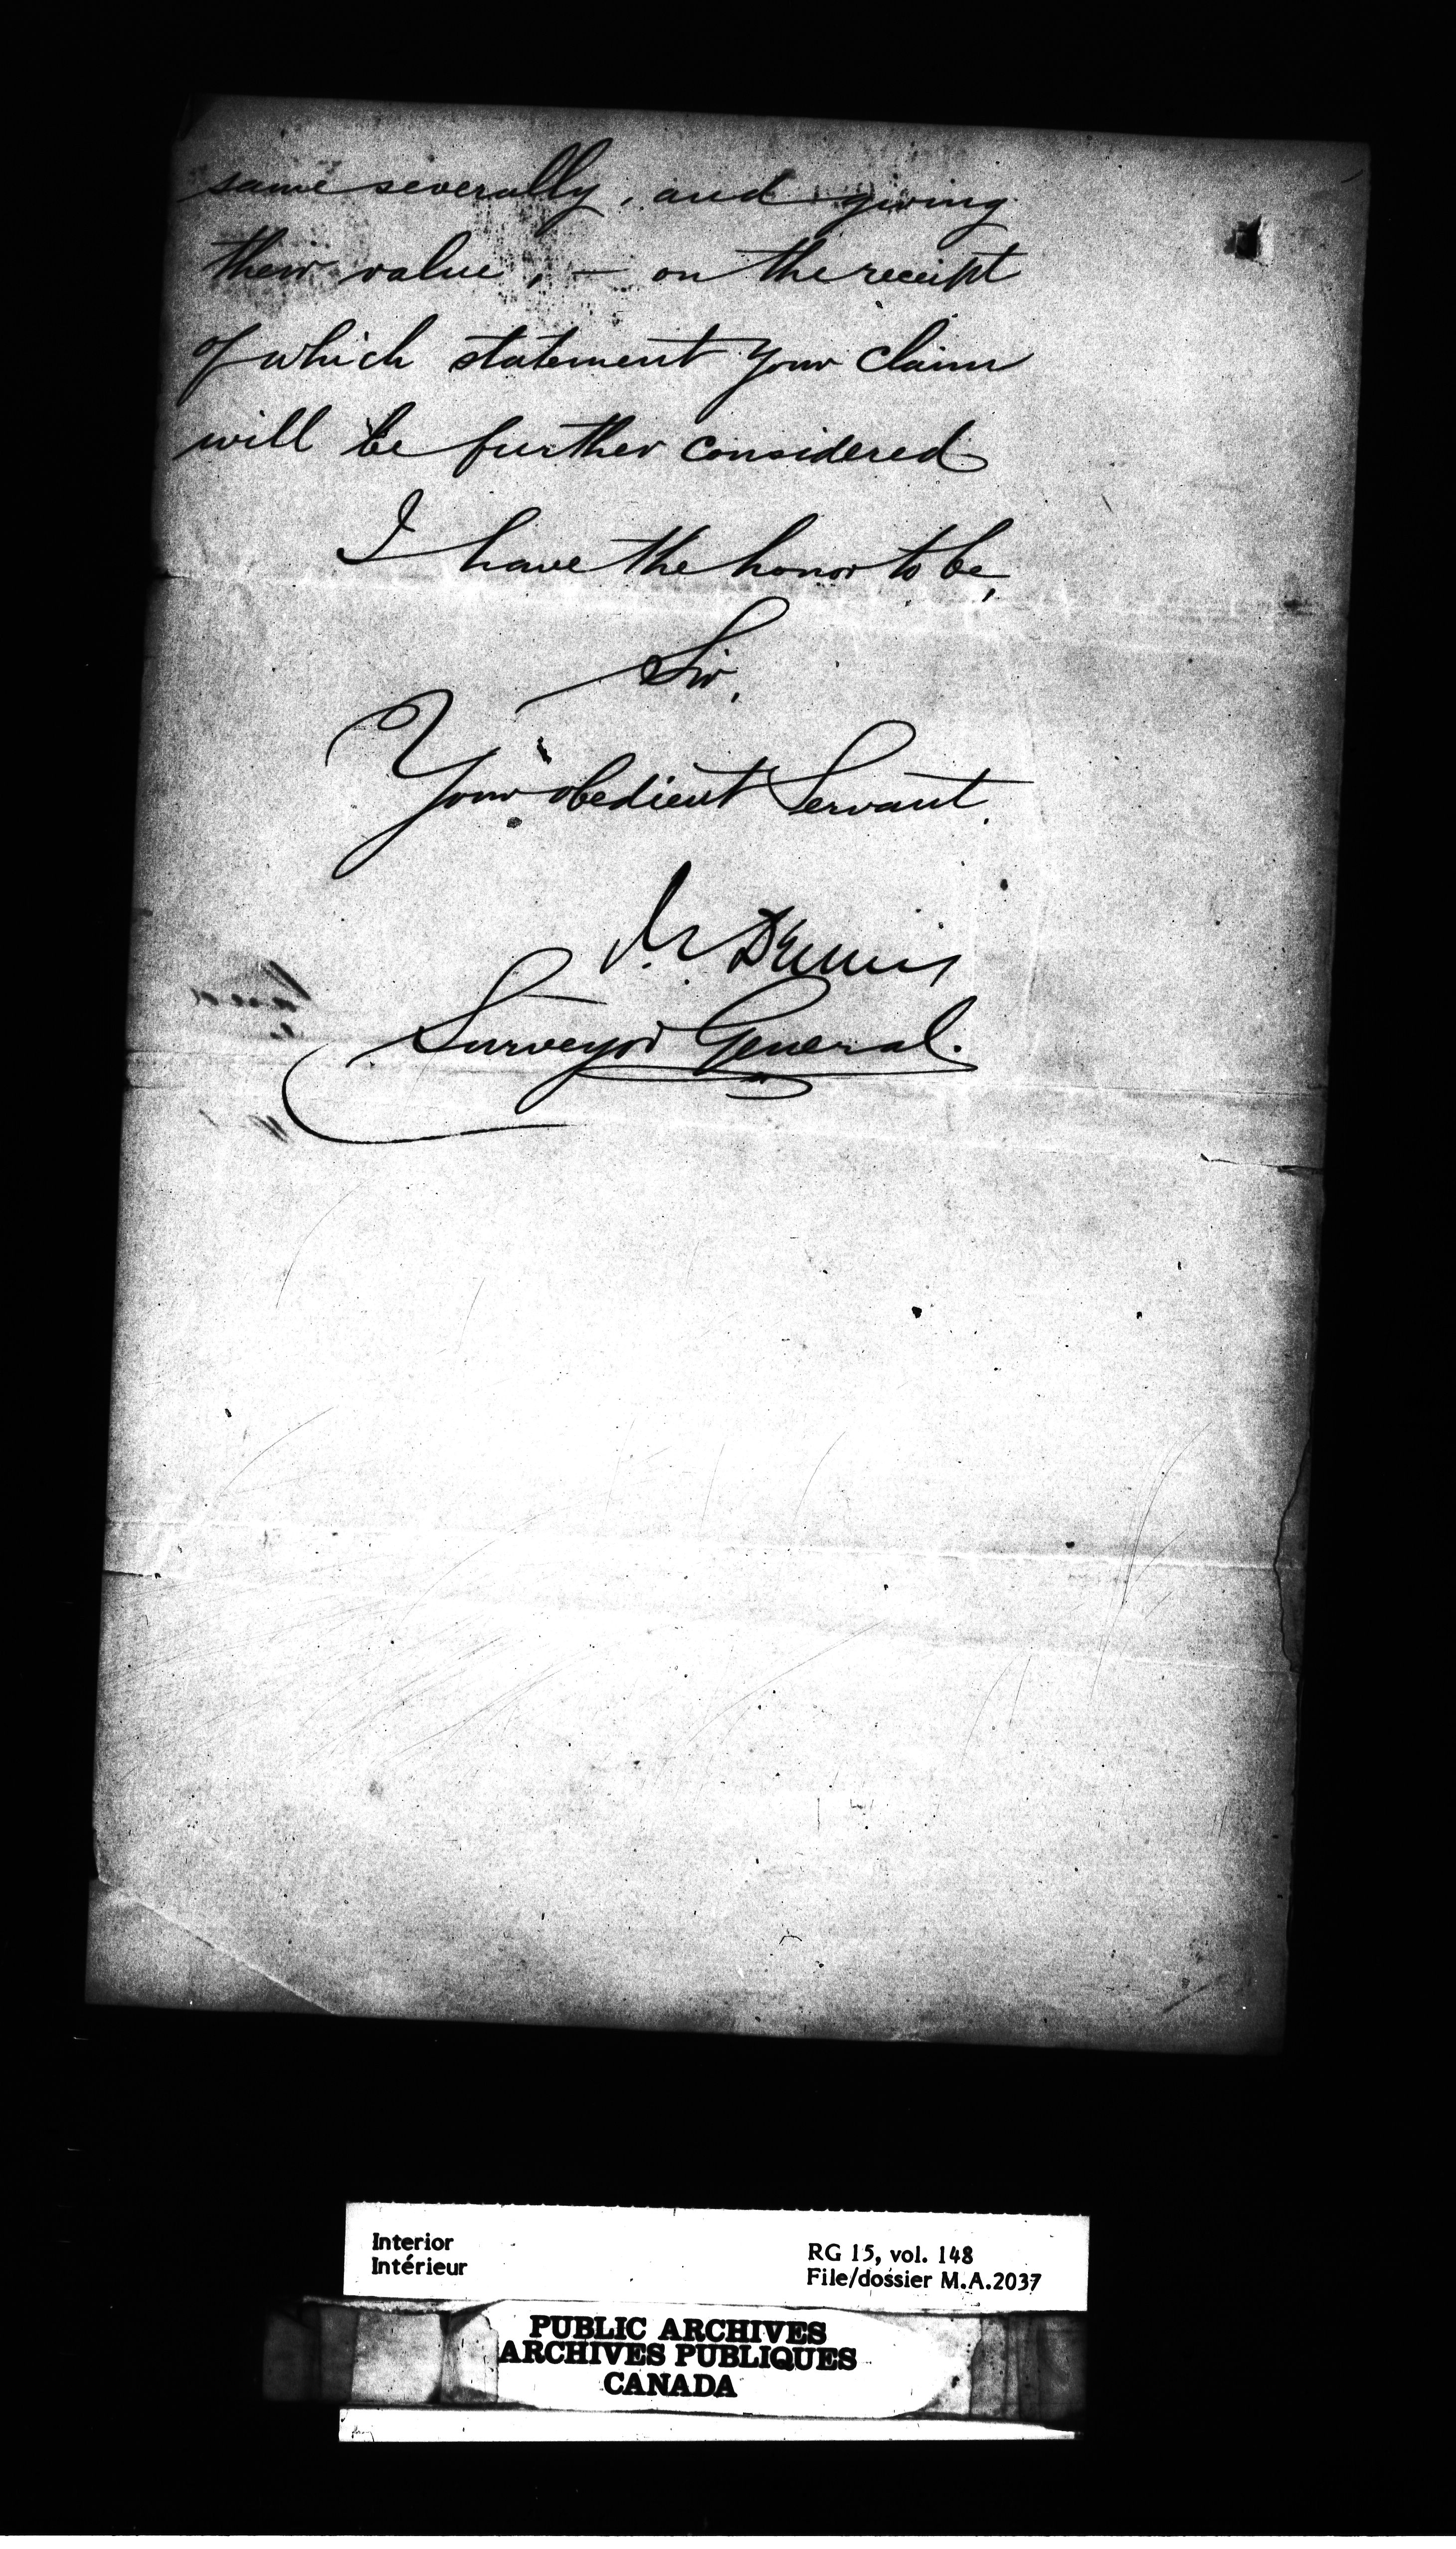 same severally, and giving
their value, — on the receipt
of which statement your claim
will be further considered
I have the honor to be,
Sir,
Your obedient Servant.
J. S. Dennis
Surveyor General.
Interior
Intérieur
RG 15, vol. 148
File/dossier M.A.2037
PUBLIC ARCHIVES
ARCHIVES PUBLIQUES
CANADA